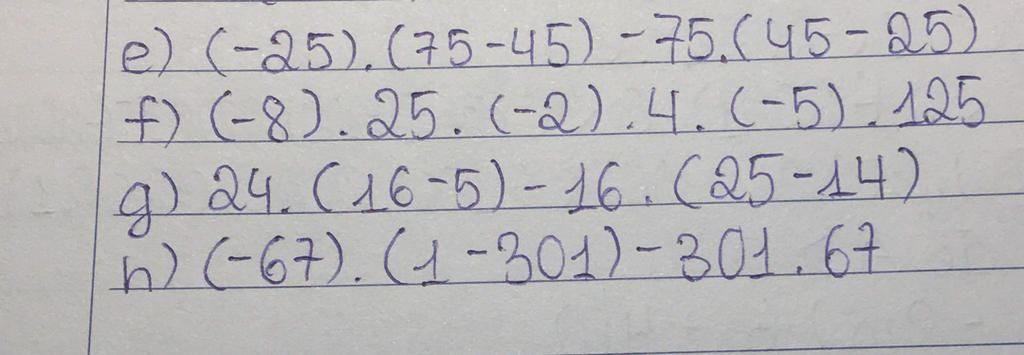 e) (-25).(75-45) -75.(45-25)
f) (-8).25.(-2).4.(-5).125
g) 24.(16-5)-16.(25-14)
h) (-67).(1-301)-301.67